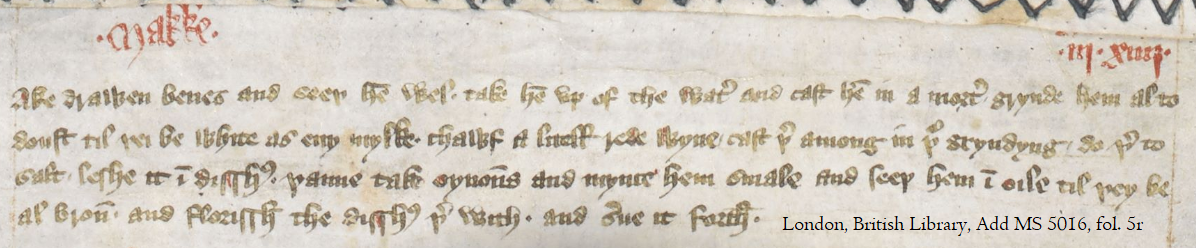 ·Makke·
·iij· xiiij·
Ake drawen benes and seeþ hē wel· take hē vp of the wat᷑ and cast hē in a mort᷑ grynde hem al to
doust til þei be white as eny mylke· chawf a litell rede wyne cast þ᷑ among in þᵉ gryndyng do þ᷑ to
salt· leshe it ī dissħ᷒· þanne take oynoūs and mynce hem smale and seeþ hem ī oile til þey be
al broū· and florissħ the dissħ᷒ þ᷑ with· and s᷑ue it forth·
London, British Library, Add MS 5016, fol. 5r